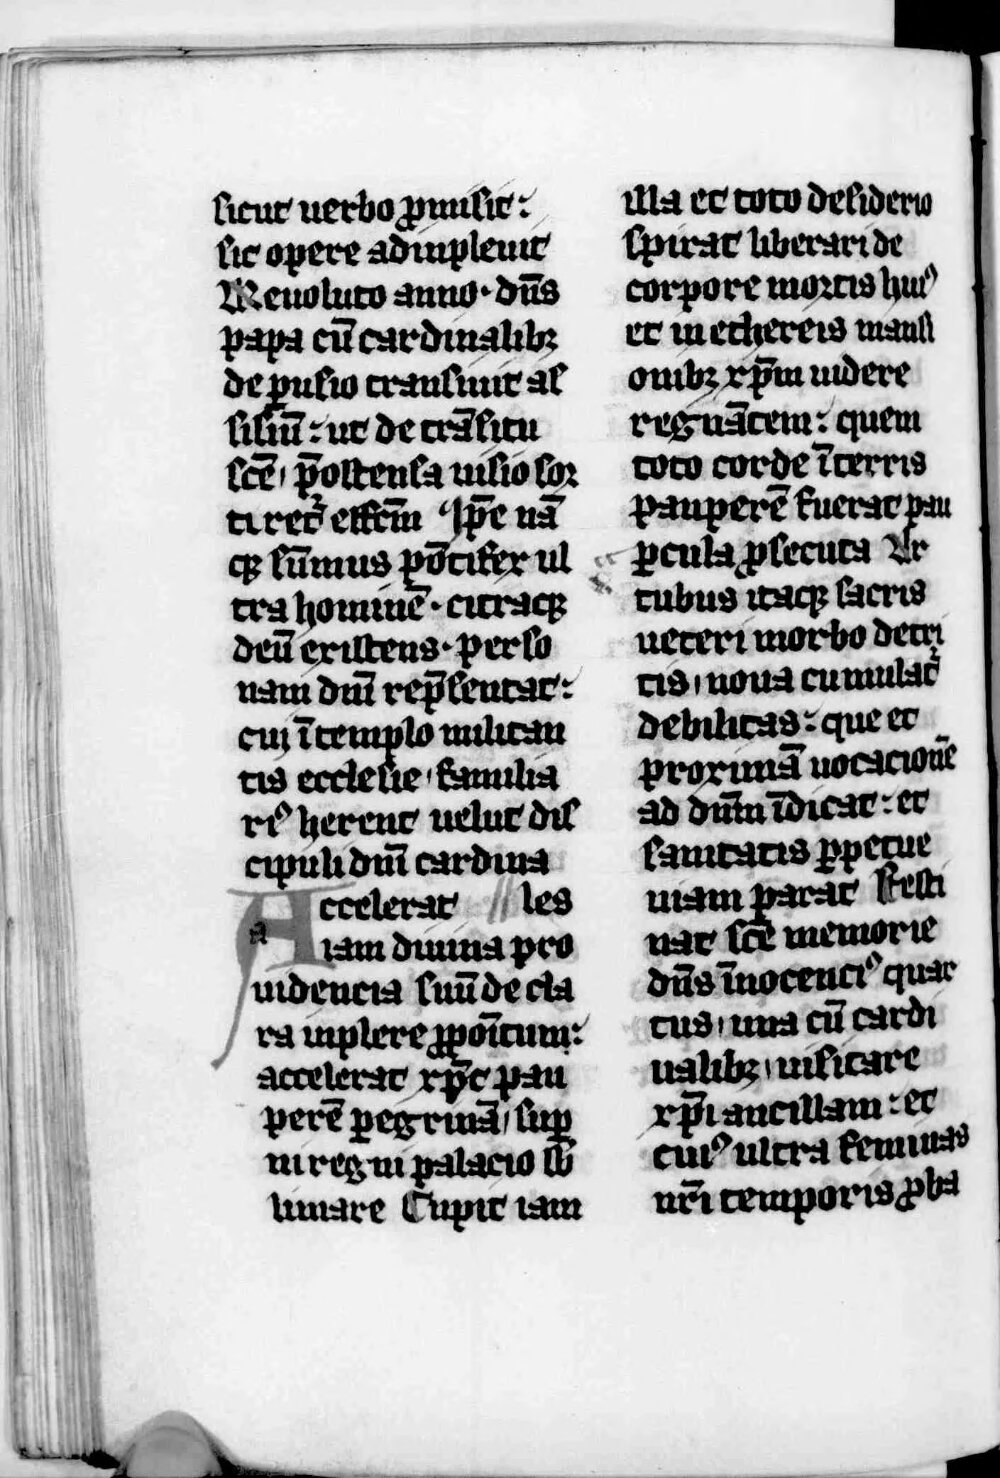 sicut uerbo ꝓmisit:
sic opere adinpleuit
Reuoluto anno· dn̄s
papa cū cardinalibꝫ
de ꝑusio transiuit as
sisiū: ut de trāsitu
scē, p̄ostensa uisio sor
tiret᷑ effcm̄ Ip̄e nā
qꝫ sūmus pōtifex ul
tra hominē· citraqꝫ
deū existens· perso
nam dm̄ rep̄sentat:
cui ī templo militan
tis ecclesie, familia
riꝰ herent uelut dis
cipuli dm̄ cardina
Accelerat // les
a iam diuina pro
uidencia suū de cla
ra inplere ꝓpoītum:
accelerat xp̄c pau
perē ꝑegrinā, suꝑ
ni regni palacio sb̄
limare Cupit iam
illa et toto desiderio
spirat liberari de
corpore mortis huiꝰ
et in ethereis mansi
onibꝫ xp̄m uidere
regnātem: quem
toto corde ī terris
pauperē fuerat pau
ꝑcula ꝓsecuta Ar
tubus itaqꝫ sacris
ueteri morbo detri
tis, noua cumulat᷑
debilitas: que et
proximā uocacionē
ad dn̄m īdicat: et
sanitatis ꝑpetue
uiam parat Festi
nat scē memorie
dn̄s īnocenciꝰ quar
tus, una cū cardi
nalibꝫ, uisitare
xp̄i ancillam: et
cuiꝰ ultra feminas
nr̄i temporis ꝓba